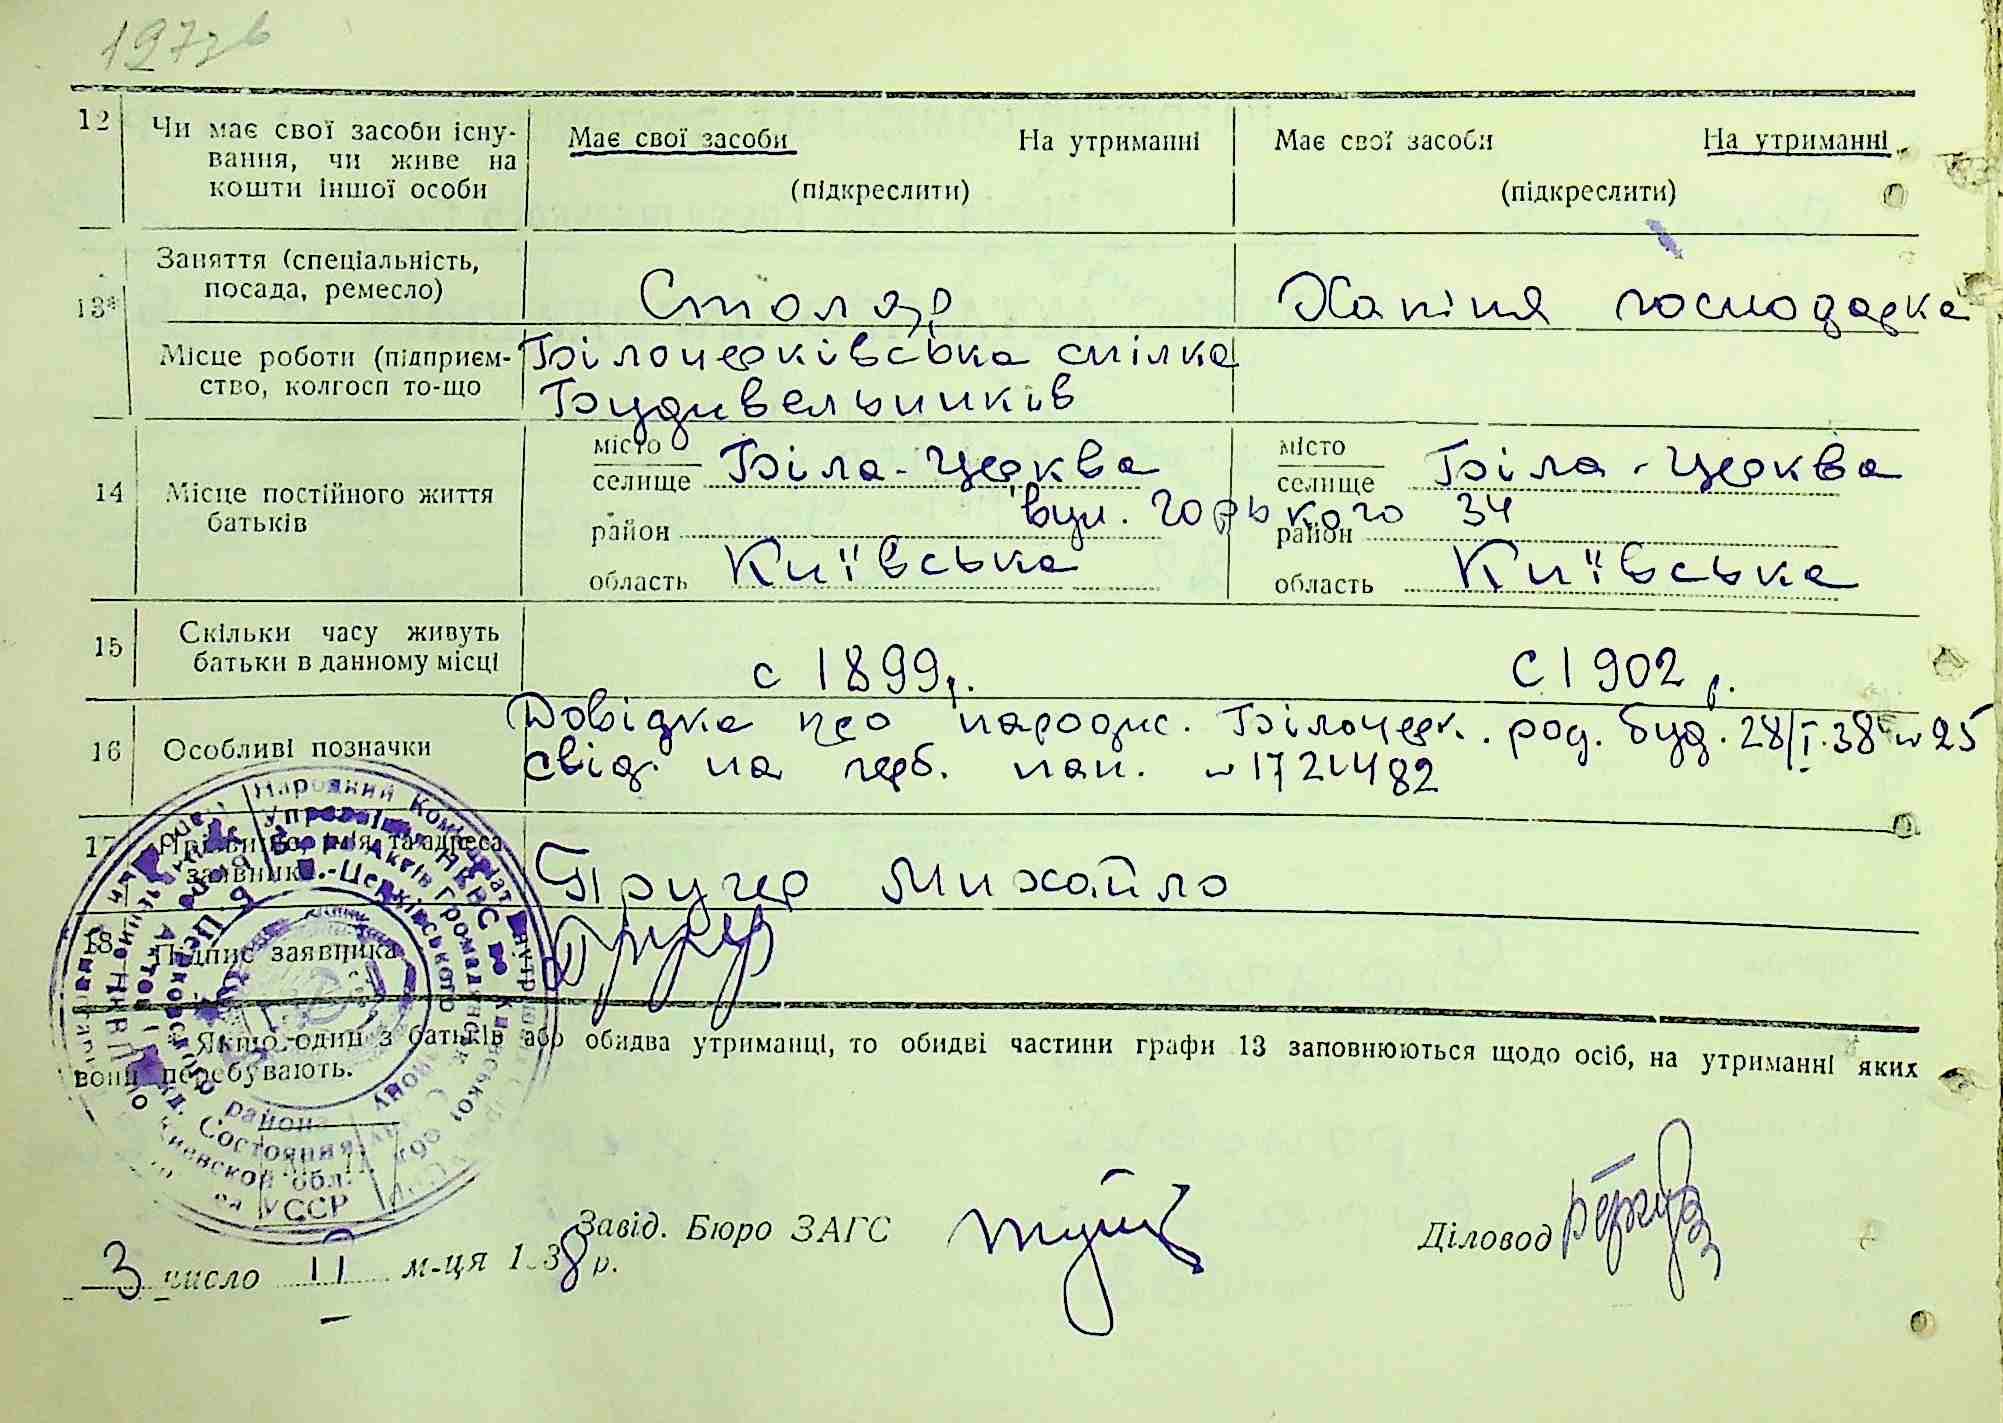 197зв
12 Чи має свої засоби існу- Має свої засоби На утриманні Має свої засоби На утриманні
вання, чи живе на
кошти іншої особи (підкреслити) (підкреслити)
Заняття (спеціальність,
13* посада, ремесло) Столяр Хатня господарка
Місце роботи (підприєм- Білоцерківська спілка
ство, колгосп то-що Будивельників
місто місто
селище Біла-Церква селище Біла-Церква
14 Місце постійного життя
батьків вул. Горького 34
район район
область Київська область Київська
15 Скільки часу живуть
батьки в данному місці с 1899р. с 1902р.
Довідка про народис. Білоцерк. род. буд. 28/I.38 № 25
16 Особливі позначки свід. на герб. пап. №1721482
17 Прізвище, ім'я та адреса
заявника Пругер Михайло
18 Підпис заявника
Якщо один з батьків або обидва утриманці, то обидві частини графи 13 заповнюються щодо осіб, на утриманні яких
вони перебувають.
Народний Комісаріат Внутрішніх
Управління НКВС по Київській обл.
Бюро Актів Громадянськ. Стану
Б.-Церківського району
Б. Церковского района
Бюро Актов Гражд. Состояния
НКВД по Киевской обл.
УССР
Завід. Бюро ЗАГС Діловод
3 число II м-ця 1938р.